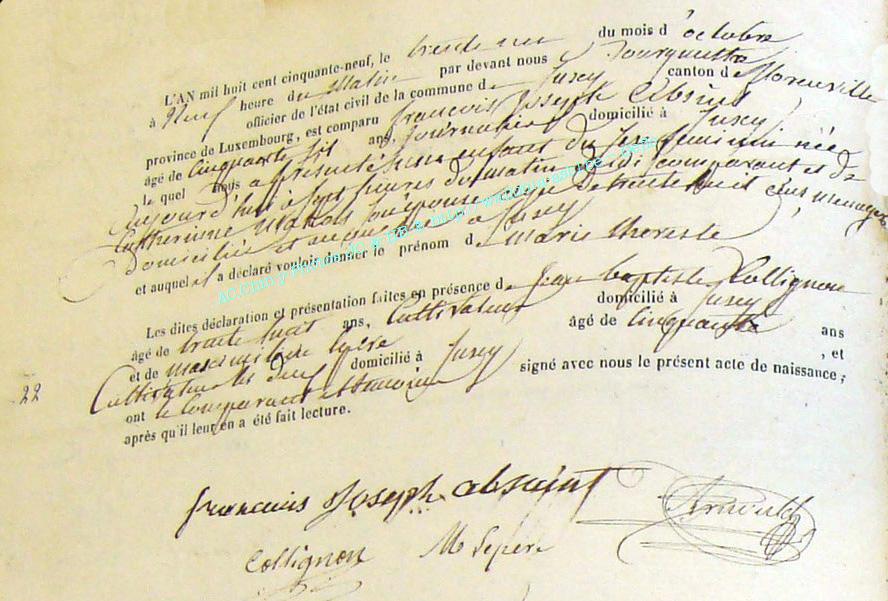 L'AN mil huit cent cinquante-neuf, le trente un du mois d'octobre
à Neuf heure du Matin par devant nous Bourgmestre
officier de l'état civil de la commune de Juzey canton de
province de Luxembourg, est comparu francois Joseph absint
âgé de cinquante six ans, Journalier domicilié à Juzey
le quel nous a présenté un enfant du sexe feminin née
aujourd'hui à sept heures du matin de lui comparant et de
catherinne son épouse agée de trente huit ans menagere
domiciliée et à Juzey
et auquel il a déclaré vouloir donner le prénom de marie therese
Les dites déclaration et présentation faites en présence de jean baptiste Collignon
âgé de trente huit ans, Cultivateur domicilié à Juzey
et de maximilien lepere âgé de cinquante ans
Cultivateur domicilié à Juzey , et
ont le Comparant et temoins signé avec nous le présent acte de naissance,
après qu'il leur en a été fait lecture.
22
francois Joseph absint
Collignon M Lepere